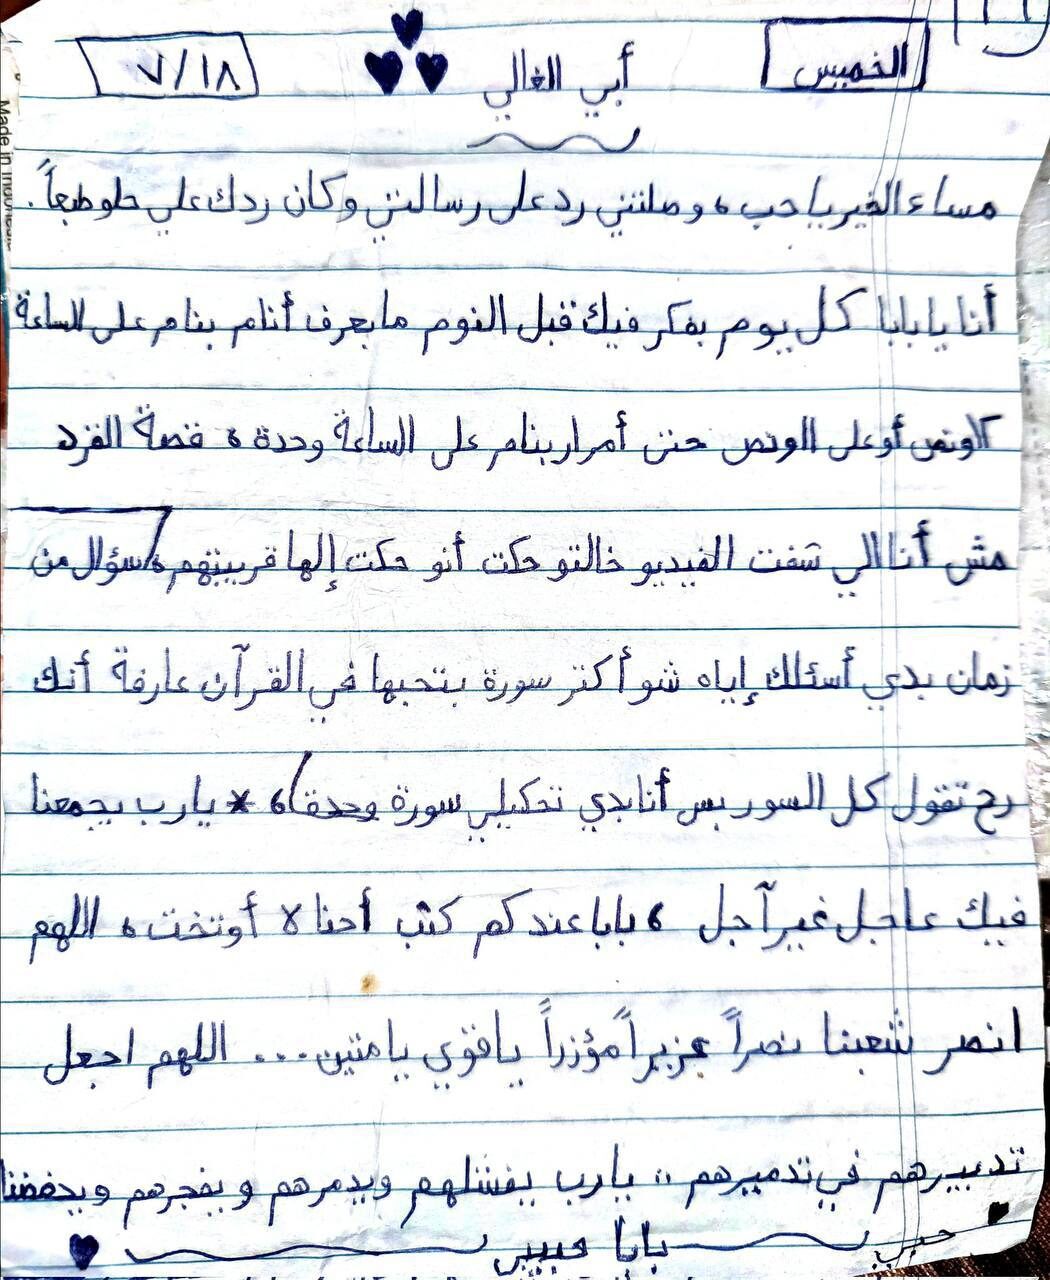 الخميس
أبي الغالي
٧/١٨
مساء الخير يا حب، وصلتني رد على رسالتي وكان ردك علي حلو طبعاً.
أنا يا بابا كل يوم بفكر فيك قبل النوم ما بعرف أنام بنام على الساعة
الونص أو على الونص حتى أمرار بنام على الساعة وحدة، قصة القرد
مش أنا الي شفت الفيديو خالتو حكت أنو حكت إلها قريبتهم، سؤال من
زمان بدي أسئلك إياه شو أكتر سورة بتحبها في القرآن عارفة أنك
رح تقول كل السور بس أنا بدي تحكيلي سورة وحدة)، * يارب يجمعنا
فيك عاجل غير آجل، بابا عندكم كتب أحنا لا أوتخت، اللهم
انصر شعبنا نصراً عزيزاً مؤزراً يا قوي يا متين... اللهم اجعل
تدبيرهم في تدميرهم،، يارب يفشلهم ويدمرهم ويفجرهم ويحفضنا
بابا حبيبي
Made in